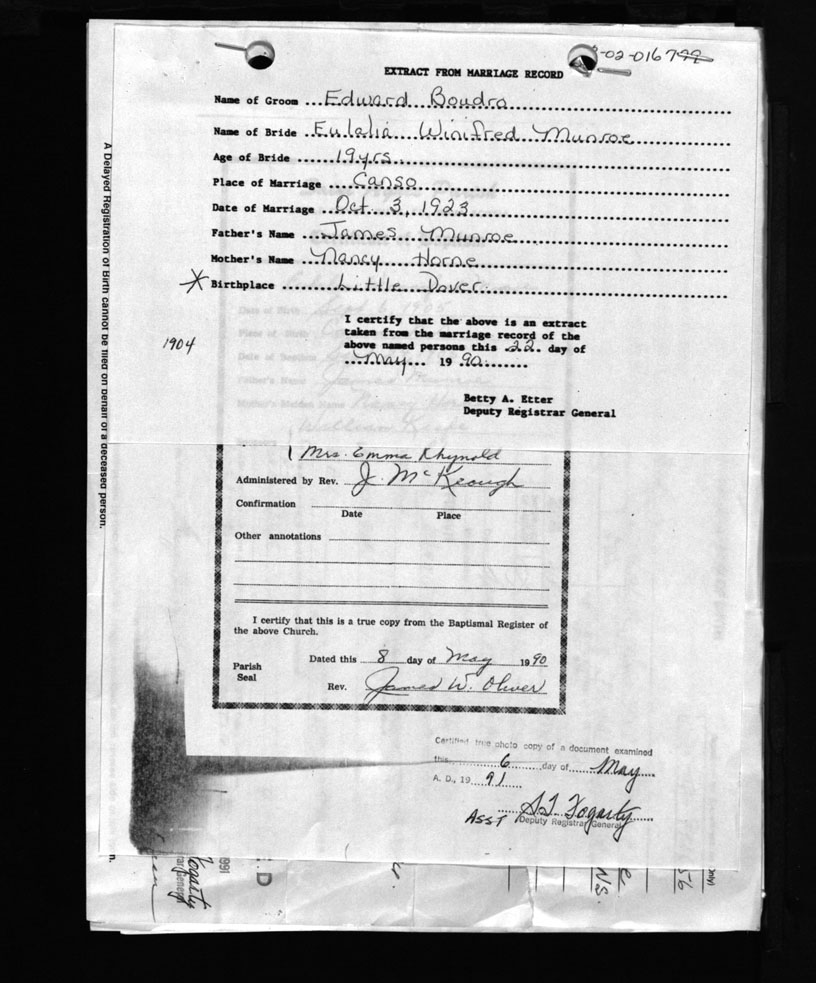 -02-016799
EXTRACT FROM MARRIAGE RECORD
Name of Groom ... Edward Boudro
Name of Bride ... Eulalia Winifred Munroe
Age of Bride ...... 19 yrs.
Place of Marriage ... Canso
Date of Marriage .. Oct 3, 1923
Father's Name ... James Munroe
Mother's Name ... Nancy Horne
* Birthplace ...... Little Dover
I certify that the above is an extract
taken from the marriage record of the
above named persons this .22. day of
....May.... 19 .90........
1904
Betty A. Etter
Deputy Registrar General
A Delayed Registration of Birth cannot be filed on behalf of a deceased person.
Mrs. Emma Rhynold
Administered by Rev. J. McKeough
Confirmation
Date Place
Other annotations
I certify that this is a true copy from the Baptismal Register of
the above Church.
Dated this 8 day of May 1990
Parish
Seal
Rev. James W. Oliver
Certified true photo copy of a document examined
this 6 day of May
A. D., 19 91
Asst
Deputy Registrar General
Fogarty
NS.
56